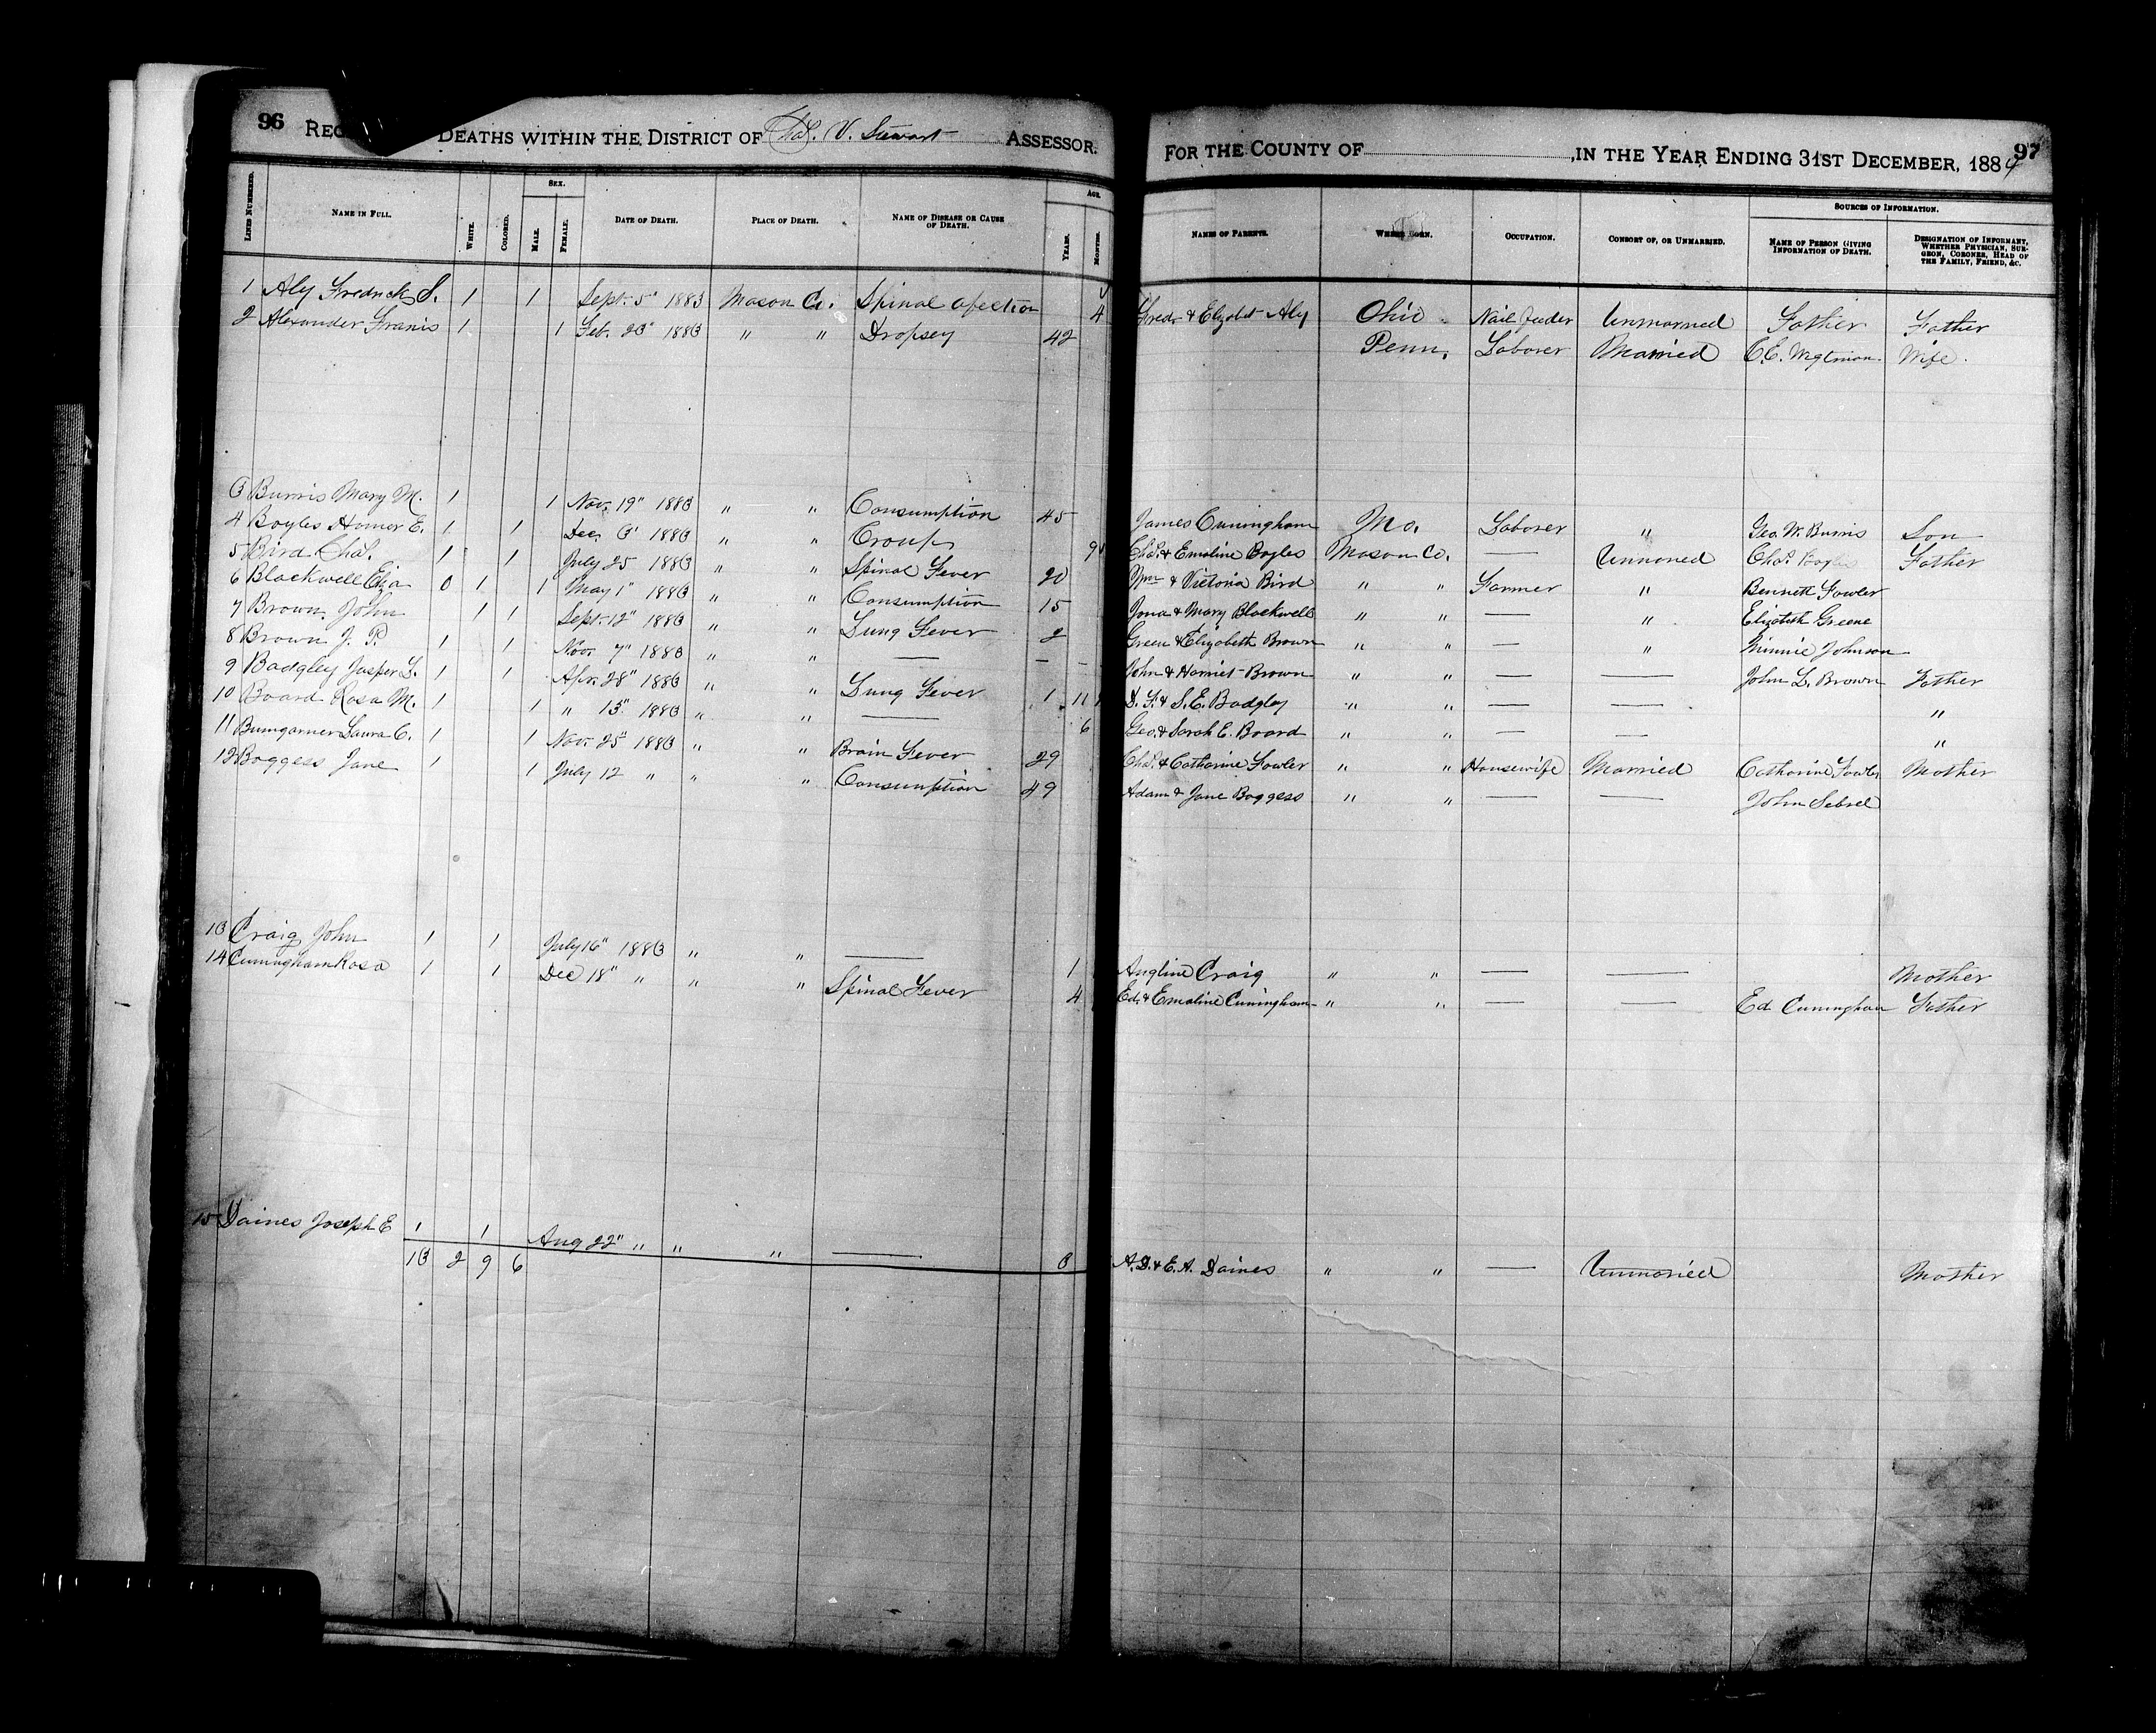 96 DEATHS WITHIN THE DISTRICT OF Chas. V. Stewart ASSESSOR.
LINES NUMBERED. NAME IN FULL. WHITE. COLORED. SEX. MALE. FEMALE. DATE OF DEATH. PLACE OF DEATH. NAME OF DISEASE OR CAUSE OF DEATH. AGE. YEARS. MONTHS.
1 Aly Fredrick S. 1 1 Sept. 5" 1883 Mason Co. Spinal afection 4
2 Alexander Franis 1 1 Feb. 23" 1883 " " Dropsey 42
3 Burris Mary M. 1 1 Nov. 19" 1883 " " Consumption 45
4 Boyles Homer E. 1 1 Dec. 3" 1883 " " Croup 9
5 Bird Chas. 1 1 July 25 1883 " " Spinal Fever 20
6 Blackwell Eliza 0 1 1 May 1" 1883 " " Consumption 15
7 Brown, John 1 1 Sept. 12" 1883 " " Lung Fever 2
8 Brown J. P. 1 1 Nov. 7" 1883 " " — — —
9 Badgley Jasper L. 1 1 Apr. 28" 1883 " " Lung Fever 1 11
10 Board Rosa M. 1 1 " 13" 1883 " " — 6
11 Bumgarner Laura C. 1 1 Nov. 25" 1883 " " Brain Fever 29
12 Boggess Jane 1 1 July 12 " " " Consumption 49
13 Craig John 1 1 July 16" 1883 " " — 1
14 Cuningham Rosa 1 1 Dec 18" " " " Spinal Fever 4
15 Daines Joseph E 1 1 Aug 22" " " " — 3
13 2 9 6
FOR THE COUNTY OF , IN THE YEAR ENDING 31ST DECEMBER, 1884 97
NAMES OF PARENTS. WHERE BORN. OCCUPATION. CONSORT OF, OR UNMARRIED. SOURCES OF INFORMATION. NAME OF PERSON GIVING INFORMATION OF DEATH. DESIGNATION OF INFORMANT, WHETHER PHYSICIAN, SURGEON, CORONER, HEAD OF THE FAMILY, FRIEND, &C.
Fred. & Elizabet Aly Ohio Nail feeder Unmarried Father Father
Penn. Laborer Married C. E. Wife.
James Cuningham Mo. Laborer " Geo. W. Burris Son
Chas. & Emaline Boyles Mason Co. — Unmaried Chas. Boyles Father
Wm & Victoria Bird " " Farmer " Bennett Fowler
Jona & Mary Blackwell " " — " Elizabeth Greene
Green & Elizabeth Brown " " — " Minnie Johnson
John & Harriet Brown " " — — John L. Brown Father
D. F. & S. E. Badgley " " — — "
Geo. & Sarah E. Board " " — — "
Chas. & Catharine Fowler " " Housewife Married Catharine Fowler Mother
Adam & Jane Boggess " " — — John Sebrel
Angline Craig " " — — Mother
Ed. & Emaline Cuningham " " — — Ed Cuningham Father
A. D. & E. A. Daines " " — Unmaried Mother